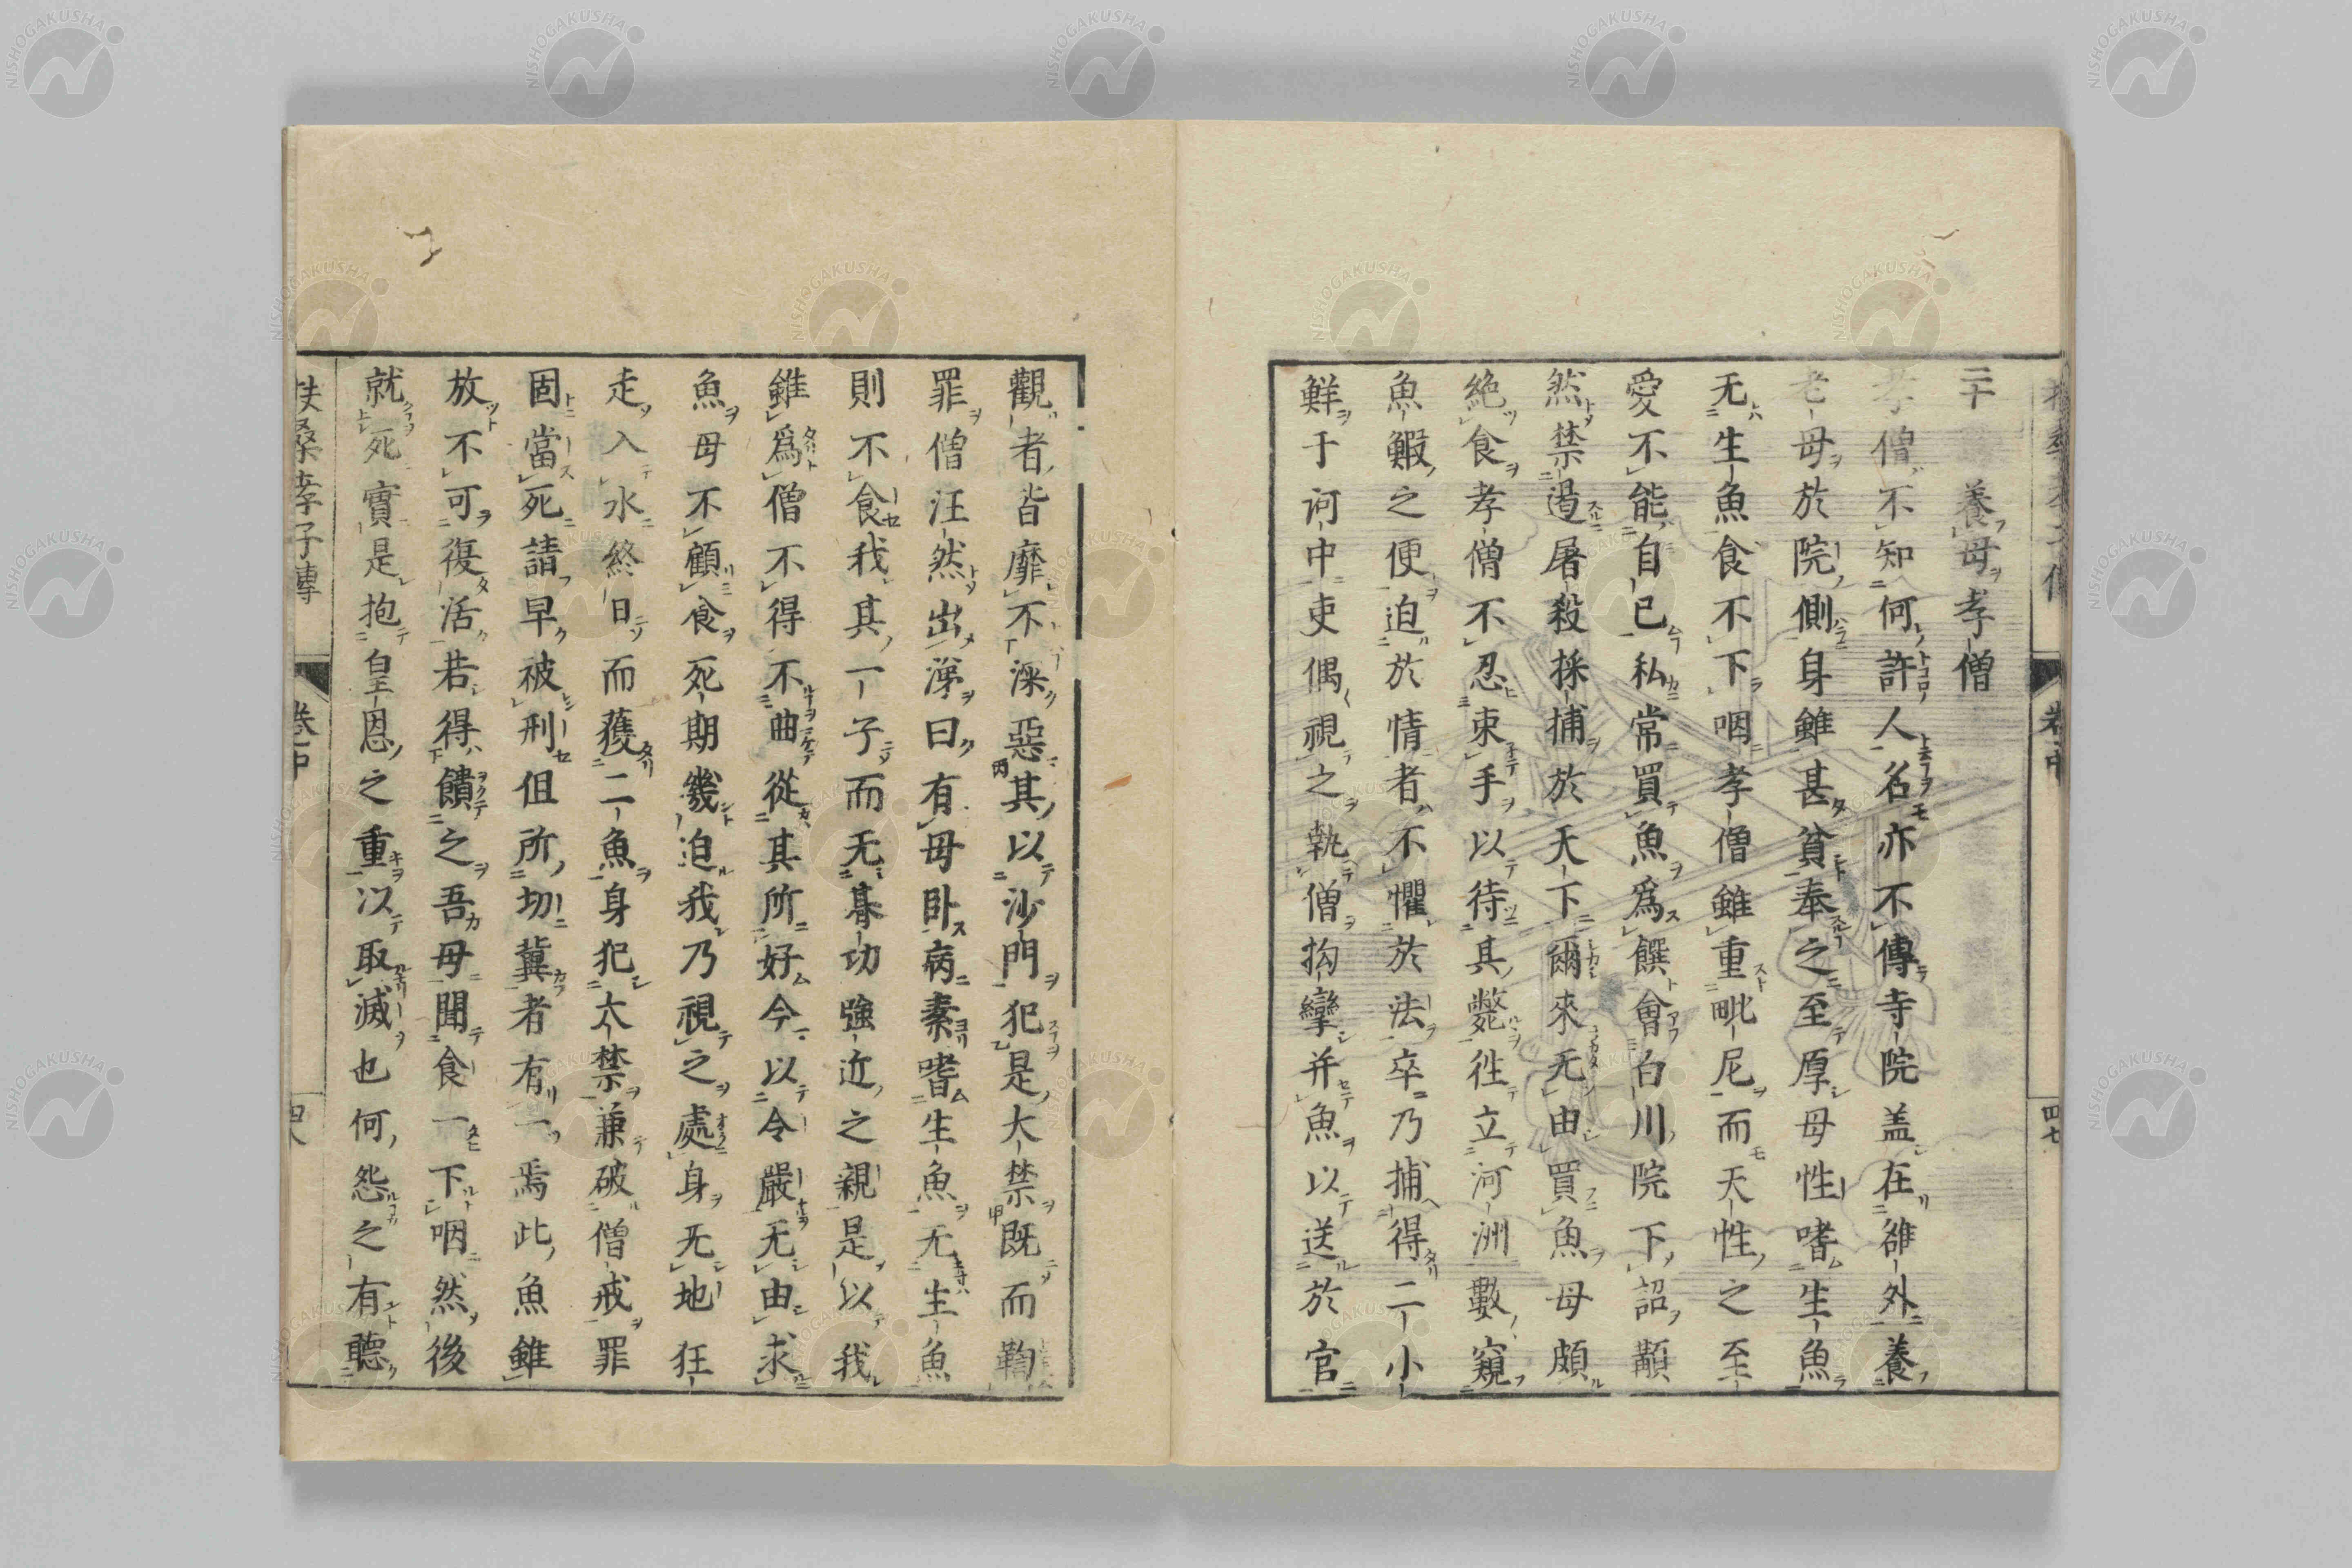 二十 養母孝僧
孝僧不知何許人名亦不傳寺院盖在雒外養
老母於院側身雖甚貧奉之至厚母性嗜生魚
无生魚食不下咽孝僧雖重毗尼而天性之至
愛不能自已私常買魚爲饌會白川院下詔顓
然禁遏屠殺採捕於天下爾來无由買魚母頗
絶食孝僧不忍束手以待其斃徃立河洲數窺
魚鰕之便迫於情者不懼於法卒乃捕得二小
鮮于訶中吏偶視之執僧拘攣并魚以送於官
四七
觀者皆靡不深惡其以沙門犯是大禁既而鞫
罪僧汪然出涕曰有母臥病素嗜生魚无生魚
則不食我其一子而无朞功強近之親是以我
雖爲僧不得不曲從其所好今以令嚴无由求
魚母不顧食死期幾迫我乃視之處身无地狂
走入水終日而獲二魚身犯大禁兼破僧戒罪
固當死請早被刑但所切冀者有一焉此魚雖
放不可復活若得饋之吾母聞食一下咽然後
就死實是抱皇恩之重以取滅也何怨之有聽
扶桑孝子傳 卷中 四八
NISHOGAKUSHA